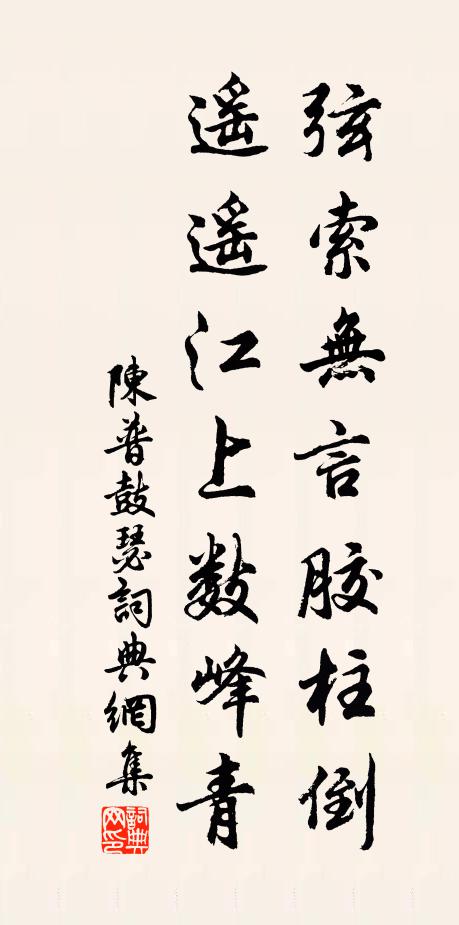 弦索無言膠柱倒
遥遥江上数峰青
陳普鼓瑟詞典網集
詞典网印